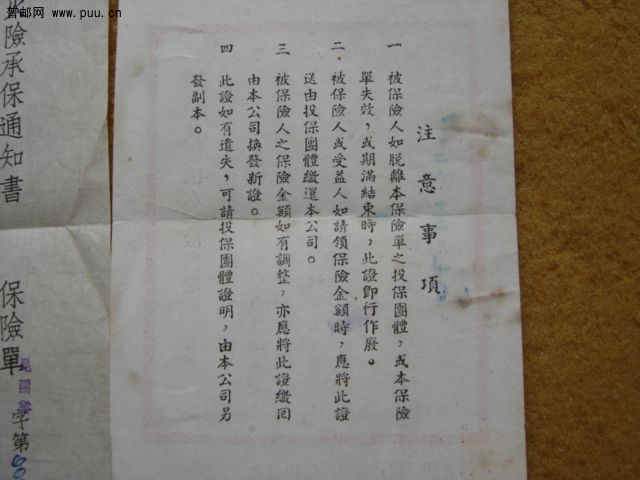 普邮网 www.puu.cn
注意事項
一 被保險人如脱離本保險單之投保團體，或本保險
單失效，或期滿結束時，此證即行作廢。
二 被保險人或受益人如請領保險金額時，應將此證
送由投保團體繳還本公司。
三 被保險人之保險金額如有調整，亦應將此證繳囘
由本公司換發新證。
四 此證如有遺失，可請投保團體證明，由本公司另
發副本。
險承保通知書
保險單
字第